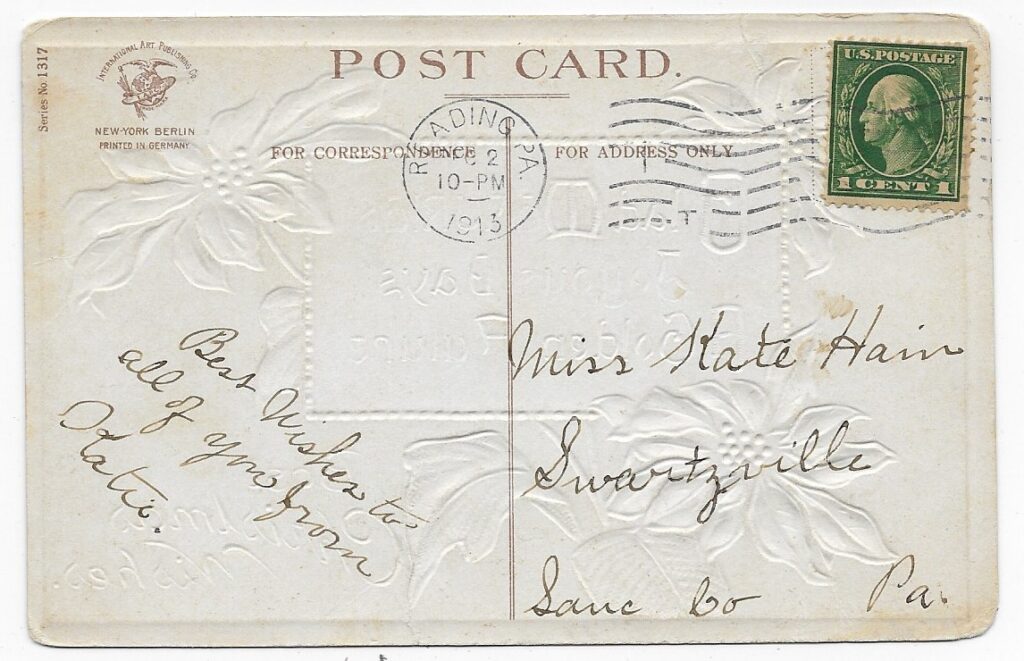 Series No. 1317
INTERNATIONAL ART PUBLISHING CO.
NEW-YORK BERLIN
PRINTED IN GERMANY
POST CARD.
FOR CORRESPONDENCE
FOR ADDRESS ONLY
READING, PA.
10-PM
1913
U.S. POSTAGE
1 CENT 1
Best Wishes to
all of you from
Katie.
Miss Kate Hain
Swartzville
Lanc Co Pa.